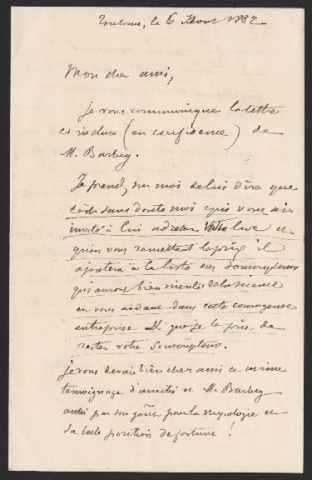 Toulouse, le 6 1882
Mon cher ami,
Je vous communique la lettre
ci incluse (en confidence) de
M. Barbey.
Je prends sur moi de lui dire que
c'est sans doute moi qui vous ai
invité à lui adresser livre et
qu'en vous remettant le prix il
ajoutera à la liste des souscripteurs
qui auront bien mérité de la science
en vous aidant dans cette courageuse
entreprise que je le prie de
rester votre souscripteur.
Je vous devais bien cher ami ce
témoignage d'amitié et M. Barbey
aussi par son goût pour la mycologie et
sa belle position de fortune !